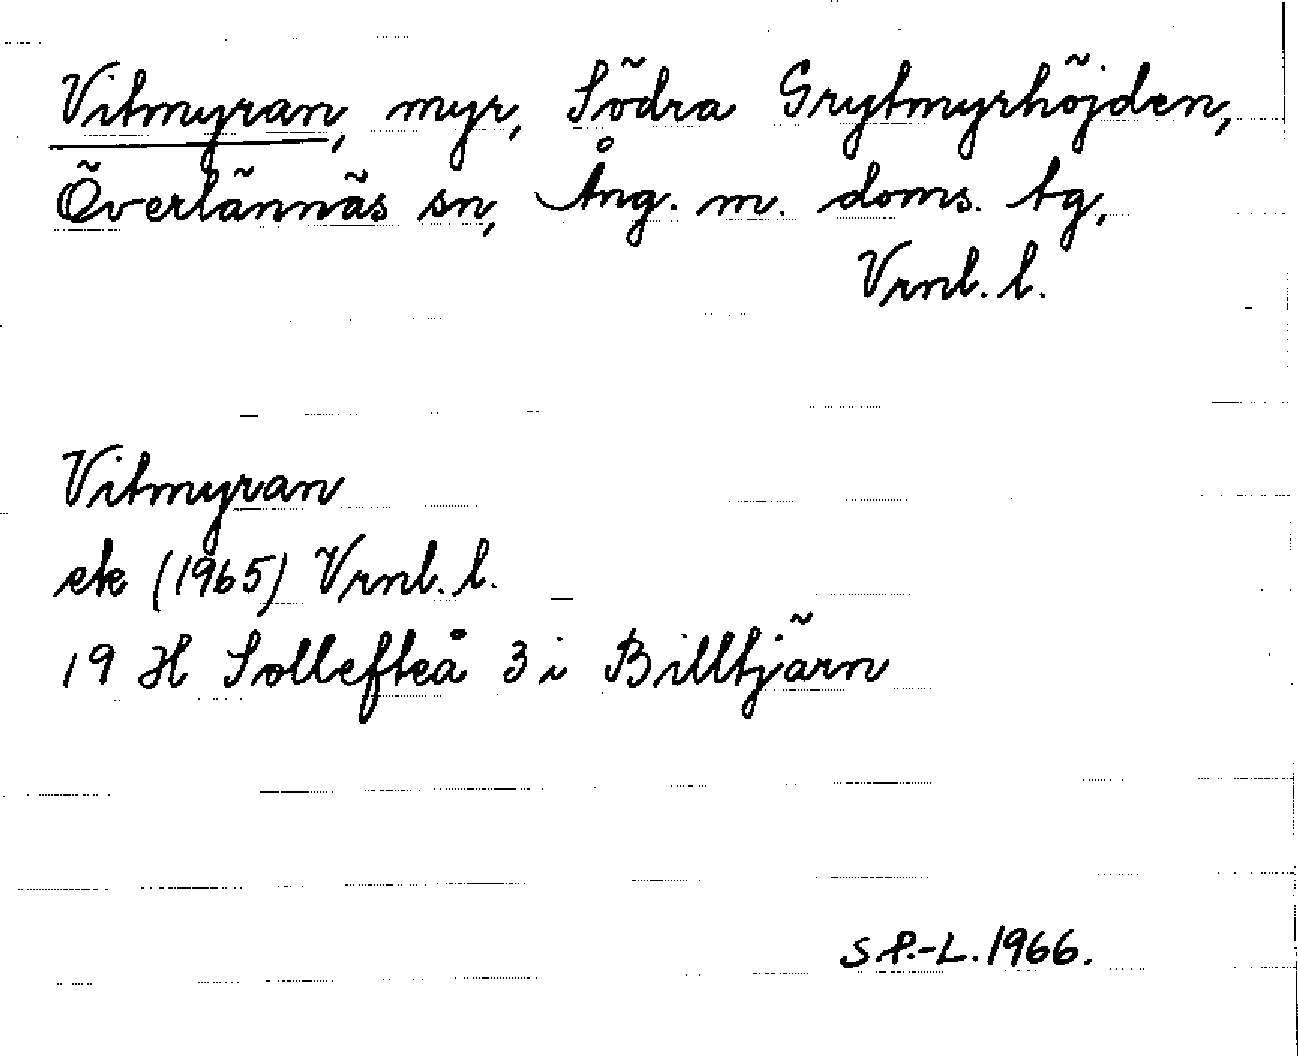 Vitmyran, myr, Södra Grytmyrhöjden,
Överlännäs sn, Ång. m. doms. tg,
Vrnl. l.
Vitmyran
ek (1965) Vrnl. l.
19 H Sollefteå 3 i Billtjärn
S P.-L. 1966.